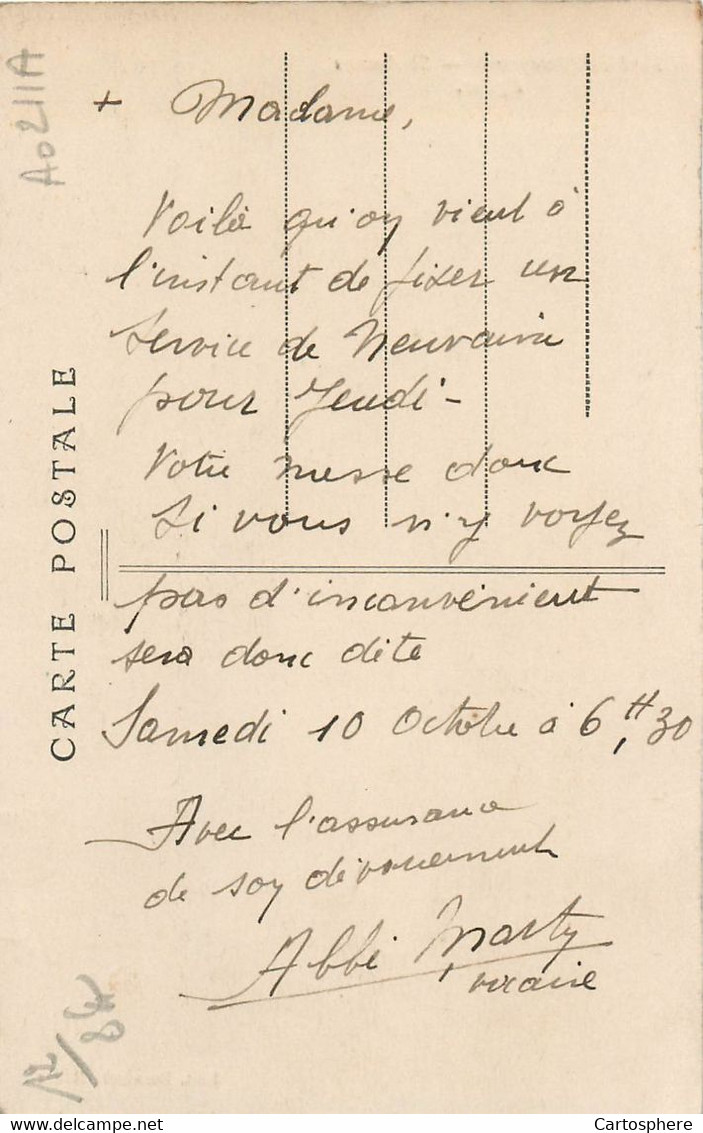 A0211A
CARTE POSTALE
+ Madame,
Voilà qu'on vient à
l'instant de fixer un
service de Neuvaine
pour Jeudi -
Votre messe donc
si vous n'y voyez
pas d'inconvénient
sera donc dite
Samedi 10 Octobre à 6H,30
Avec l'assurance
de son dévouement
Abbé Marty
vicaire
Cartosphere